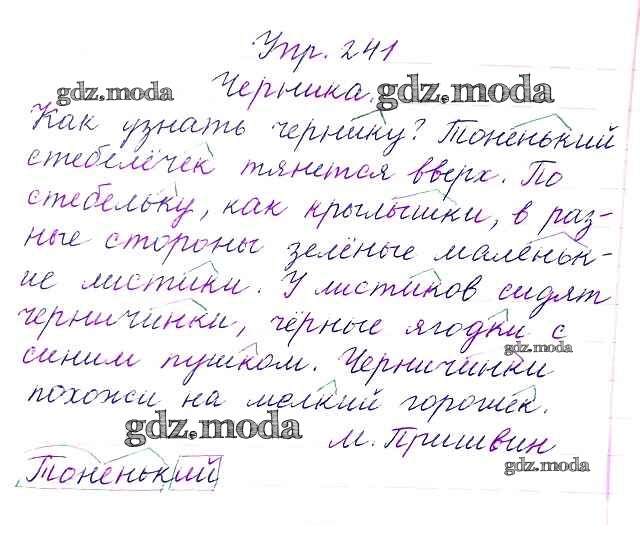 Упр. 241
gdz.moda Черника. gdz.moda
Как узнать чернику? Тоненький
стебелёчек тянется вверх. По
стебельку, как крылышки, в раз-
ные стороны зелёные маленьк-
ие листики. У листиков сидят
черничинки, чёрные ягодки с
gdz.moda
синим пушком. Черничинки
похожи на мелкий горошек.
gdz.moda М. Пришвин
gdz.moda
Тоненький